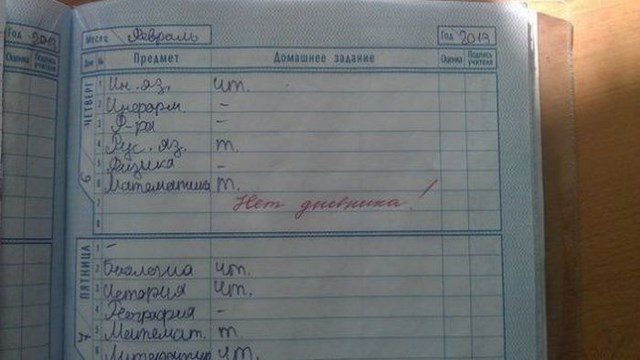 Год 2019
Оценка Подпись учителя
Месяц Февраль Год 2019
Дни № Предмет Домашнее задание Оценка Подпись учителя
ЧЕТВЕРГ
6
1 Ин. яз. чт.
2 Информ. -
3 Ф-ра -
4 Рус. яз. т.
5 Физика -
6 Математика т.
7 Нет дневника!
8
ПЯТНИЦА
7
1 -
2 Биология чт.
3 История чт.
4 География -
5 Математ. т
6 Литература чт.